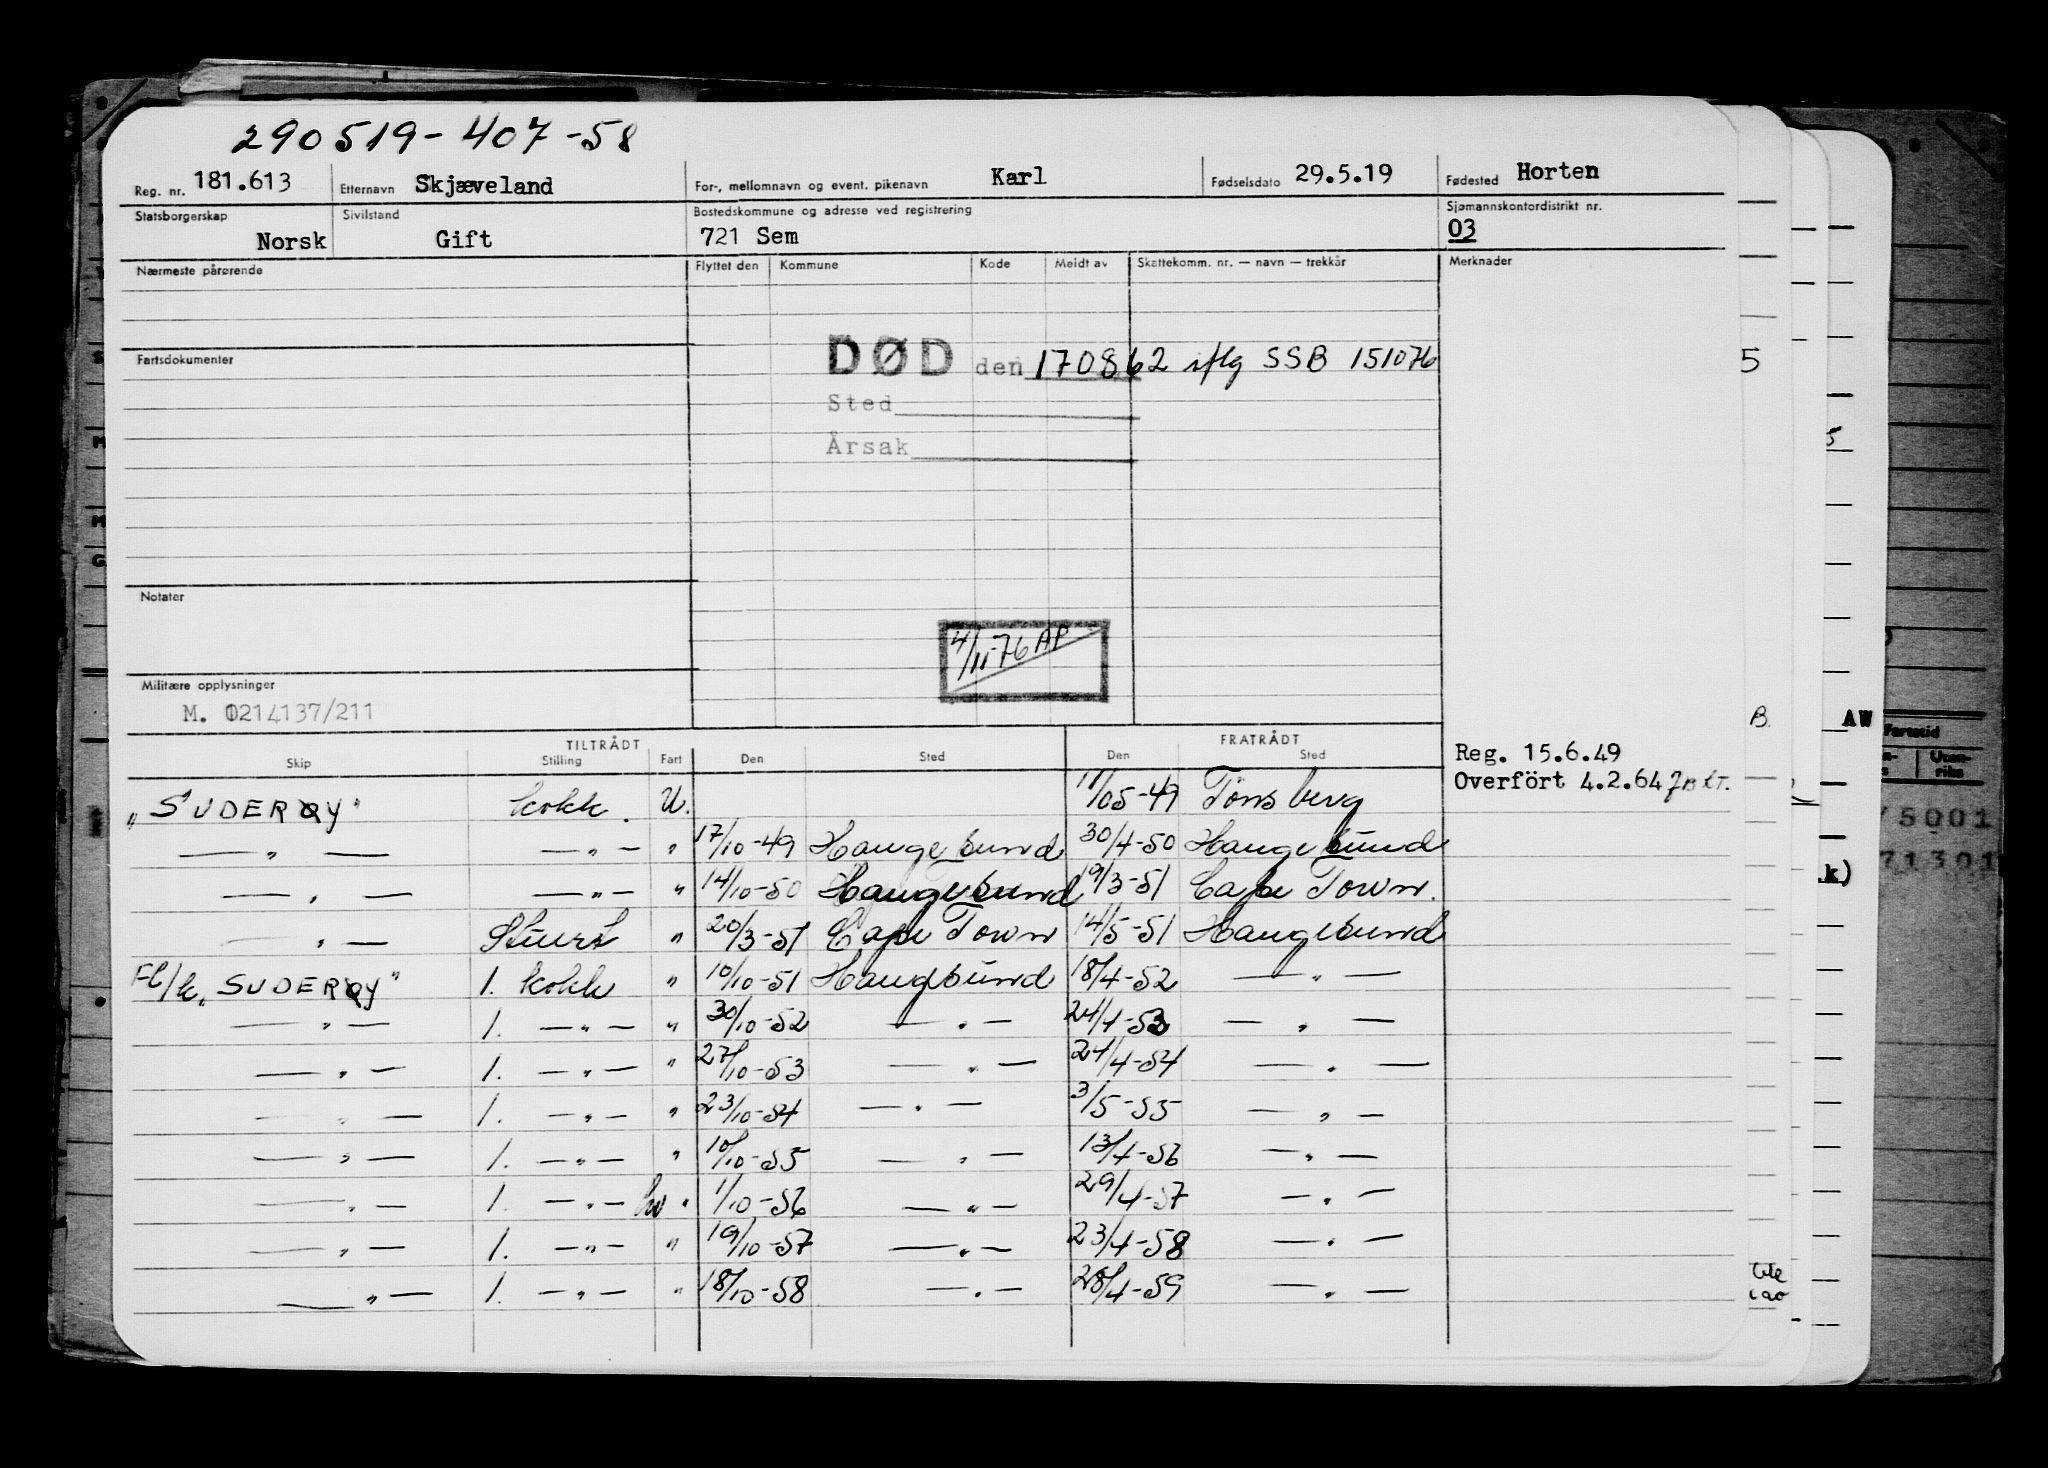 290519-407-58
Reg. nr. 181.613 Etternavn Skjæveland For-, mellomnavn og event. pikenavn Karl Fødselsdato 29.5.19 Fødested Horten
Statsborgerskap Sivilstand Bostedskommune og adresse ved registrering Sjømannskontordistrikt nr.
Norsk Gift 721 Sem 03
Nærmeste pårørende Flyttet den Kommune Kode Meldt av Skattekomm. nr. — navn — trekkår Merknader
Fartsdokumenter DØD den 170862 iflg SSB 151076 5
Sted
Årsak
Notater
4/11-76 AP
Militære opplysninger
M. 0214137/211
B. AW
TILTRÅDT FRATRÅDT
Skip Stilling Fart Den Sted Den Sted
Reg. 15.6.49
Overført 4.2.64
"SUDERØY" kokk. U. 11/05-49 Tönsberg
— " — — " — " 17/10-49 Haugesund 30/4-50 Haugesund
— " — — " — " 14/10-50 Haugesund 19/3-51 Cape Town.
— " — Stuert " 20/3-51 Cape Town 14/5-51 Haugesund
Fl/k "SUDERØY" 1. kokk " 10/10-51 Haugesund 18/4-52 — " —
— " — 1. — " — " 30/10-52 — " — 24/4-53 — " —
— " — 1. — " — " 27/10-53 — " — 24/4-54 — " —
— " — 1. — " — " 23/10-54 — " — 3/5-55 — " —
— " — 1. — " — " 10/10-55 — " — 13/4-56 — " —
— " — 1. — " — hv " 1/10-56 — " — 29/4-57 — " —
— " — 1. — " — " 19/10-57 — " — 23/4-58 — " —
— " — 1. — " — " 18/10-58 — " — 28/4-59 — " —
Fartstid
Uten-
riks
75001
71301
k)